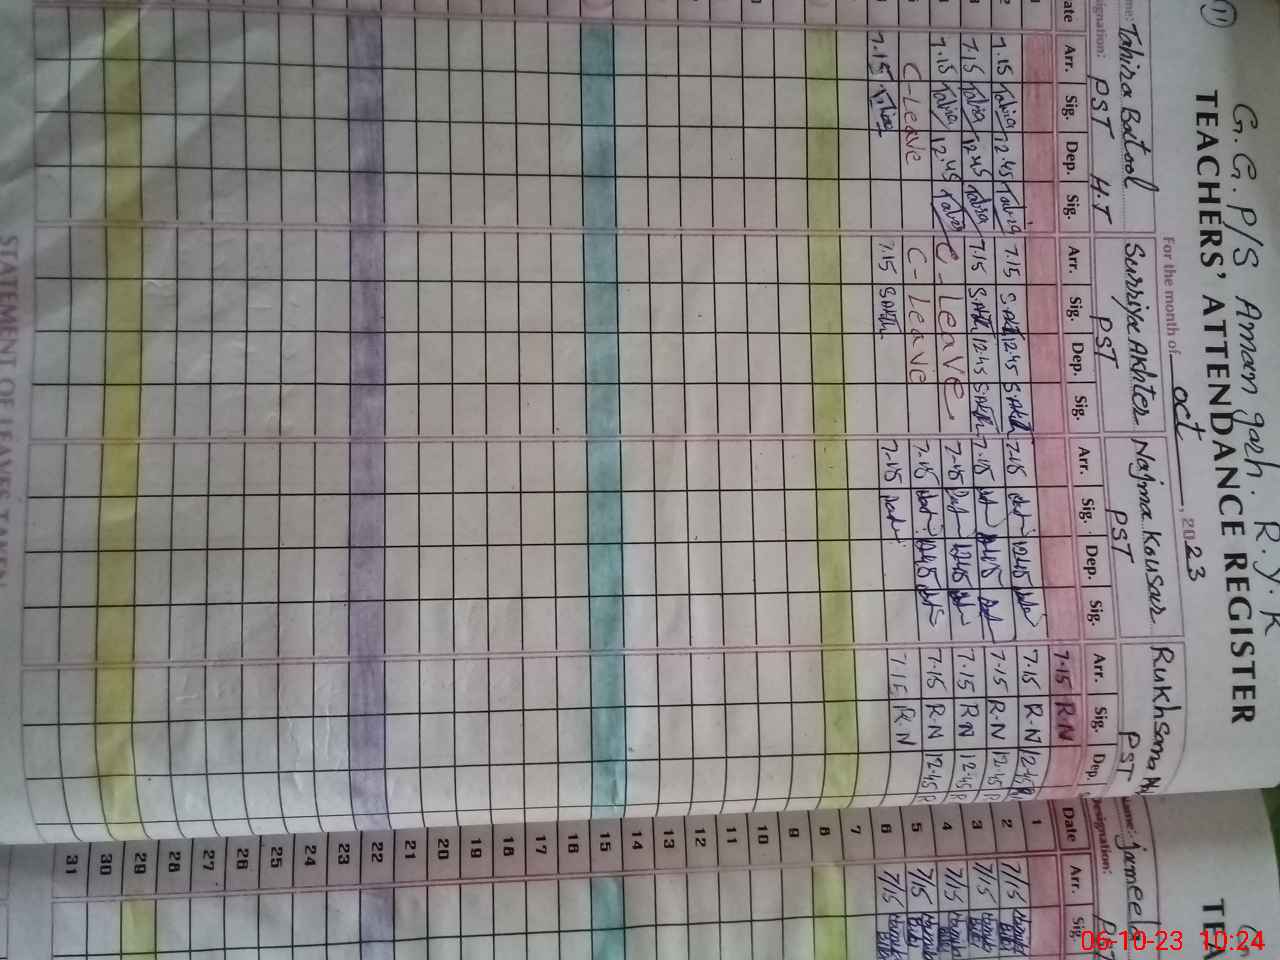 (11)
G.G.P/S Aman garh. R.Y.K
TEACHERS' ATTENDANCE REGISTER
For the month of oct, 2023
me: Tahira Batool Surriya Akhter Najma Kousar Rukhsana
signation: PST H.T PST PST PST
ate Arr. Sig. Dep. Sig. Arr. Sig. Dep. Sig. Arr. Sig. Dep. Sig. Arr. Sig. Dep.
7-15 R-N
2 7.15 Tahira 12.45 Tahira 7.15 S.Akh 12.45 S.Akh 7-15 12.45 7-15 R-N 12-45
7.15 Tahira 12.45 Tahira 7.15 S.Akh 12.45 S.Akh 7-15 12.45 7-15 R-N 12-45
7.15 Tahira 12.45 Tahira C-Leave 7-15 12.45 7-15 R-N 12-45
C-Leave C-Leave 7-15 12.45 7-15 R-N 12-45
7.15 Tahira 7.15 S.Akh 7-15 7-15 R-N
STATEMENT OF LEAVES TAKEN
TEA
ame: jameela
Designation:
Date Arr. Sig.
1
2 7/15
3 7/15
4 7/15
5 7/15
6 7/15
7
8
9
10
11
12
13
14
15
16
17
18
19
20
21
22
23
24
25
26
27
28
29
30
31
06-10-23 10:24